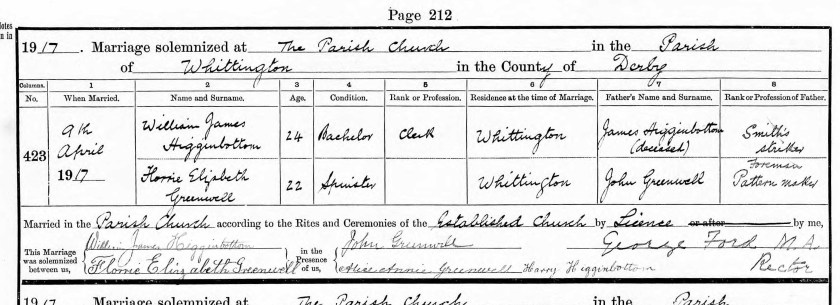 Page 212
1917. Marriage solemnized at The Parish Church in the Parish
of Whittington in the County of Derby
Columns. 1 2 3 4 5 6 7 8
No. When Married. Name and Surname. Age. Condition. Rank or Profession. Residence at the time of Marriage. Father's Name and Surname. Rank or Profession of Father.
423 9th April 1917 William James Higginbottom 24 Bachelor Clerk Whittington James Higginbottom (deceased) Smith's striker
Florrie Elizabeth Greenwell 22 Spinster Whittington John Greenwell Foreman Pattern maker
Married in the Parish Church according to the Rites and Ceremonies of the Established Church by Licence or after by me,
This Marriage was solemnized between us, William James Higginbottom in the Presence of us, John Greenwell George Ford M.A.
Florrie Elizabeth Greenwell Alice Annie Greenwell Harry Higginbottom Rector
1917 Marriage solemnized at The Parish Church in the Parish